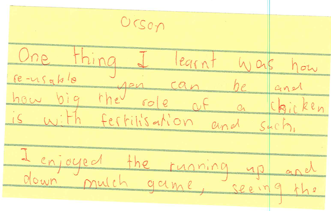 Orson
One thing I learnt was how
re-usable you can be and
how big the role of a chicken
is with fertilisation and such.
I enjoyed the running up and
down mulch game, seeing the